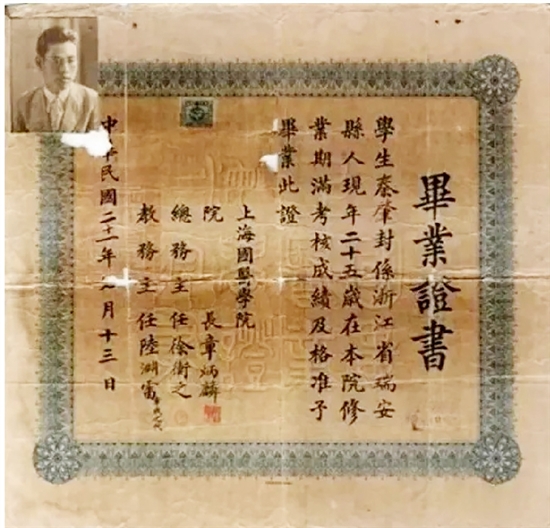 畢業證書
學生秦肇封係浙江省瑞安
縣人現年二十五歲在本院修
業期滿考核成績及格准予
畢業此證
上海國醫學院
院長章炳麟
總務主任徐衡之
教務主任陸淵雷
中華民國二十一年 月十三日